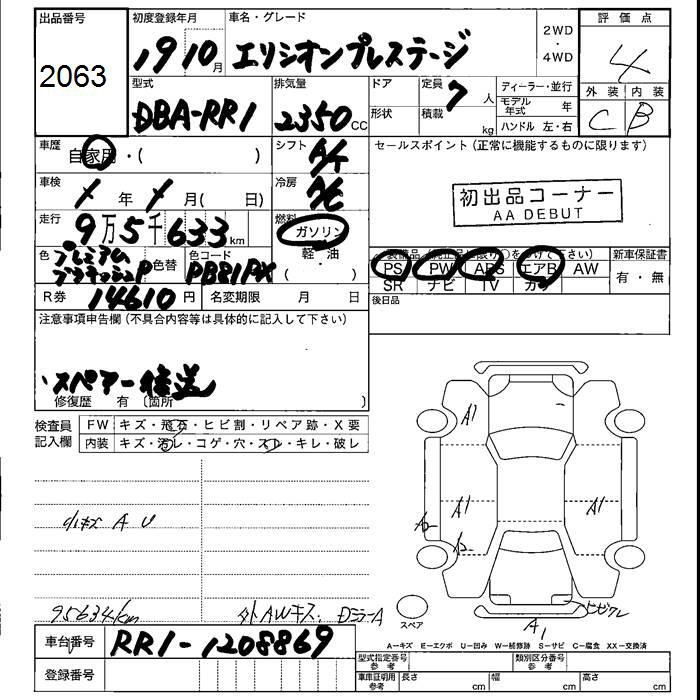 出品番号
2063
初度登録年月
19 10月
車名・グレード
エリシオンプレステージ
2WD
・
4WD
評価点
4
外装 内装
C B
型式
DBA-RR1
排気量
2350cc
ドア
形状
定員
7人
積載
kg
ディーラー・並行
モデル年式 年
ハンドル 左・右
車歴
自家用・( )
シフト
A/T
セールスポイント(正常に機能するものに限ります)
初出品コーナー
AA DEBUT
車検
年 月( 日)
冷房
A/C
走行
9万5千633km
燃料
ガソリン
軽・油
色
プレミアム
色替
色コード
PB81PX
装備品(純正品に限り○をつけて下さい)
PS PW ABS エアB AW
SR ナビ TV カワ
新車保証書
有・無
R券 14610円
名変期限 月 日
後日品
注意事項申告欄(不具合内容等は具体的に記入して下さい)
スペアー後送
修復歴 有 〔箇所 〕
検査員
記入欄
FW キズ・飛石・ヒビ割・リペア跡・X要
内装 キズ・汚レ・コゲ・穴・スレ・キレ・破レ
小キズ A U
95634km
外 AWキズ. DミラーA
A1
A1
A1
A1
スペア
A-キズ E-エクボ U-凹み W-補修跡 S-サビ C-腐食 XX-交換済
車台番号 RR1-1208869
登録番号
型式指定番号
参考
類別区分番号
参考
車庫証明用
参考
長さ cm 幅 cm 高さ cm